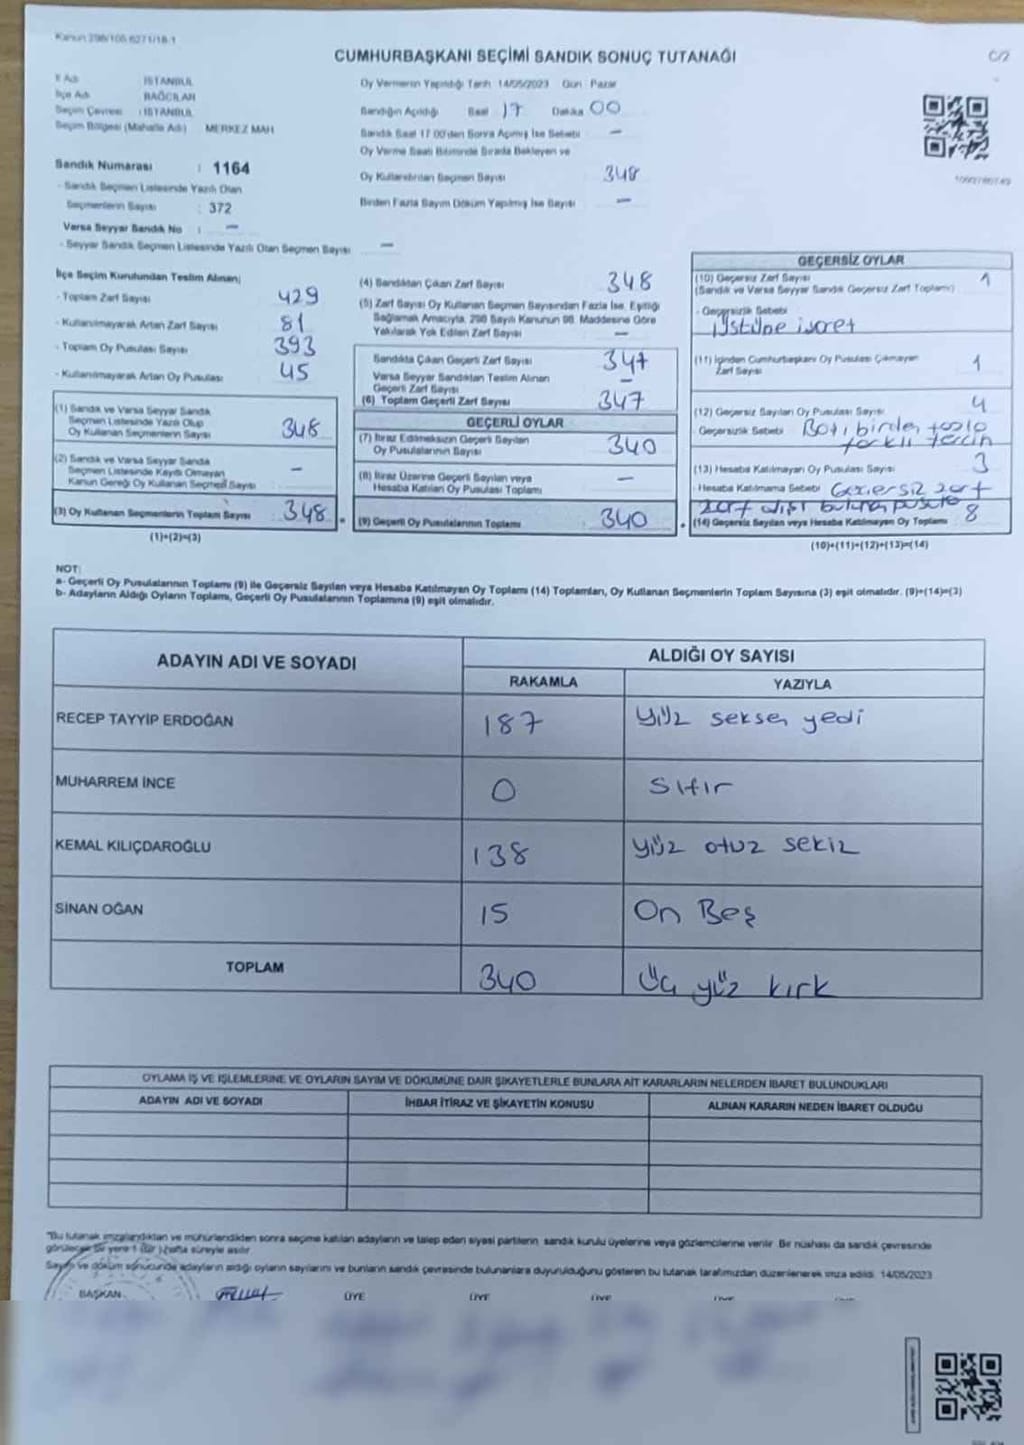 Kanun:298/105 6271/18-1
CUMHURBAŞKANI SEÇİMİ SANDIK SONUÇ TUTANAĞI
C/2
İl Adı : İSTANBUL
İlçe Adı : BAĞCILAR
Seçim Çevresi : İSTANBUL
Seçim Bölgesi (Mahalle Adı) MERKEZ MAH
Sandık Numarası : 1164
- Sandık Seçmen Listesinde Yazılı Olan
Seçmenlerin Sayısı : 372
Varsa Seyyar Sandık No : —
- Seyyar Sandık Seçmen Listesinde Yazılı Olan Seçmen Sayısı —
Oy Vermenin Yapıldığı Tarih 14/05/2023 Gün : Pazar
Sandığın Açıldığı Saat 17 Dakika 00
Sandık Saat 17:00'den Sonra Açılmış İse Sebebi —
Oy Verme Saati Bitiminde Sırada Bekleyen ve
Oy Kullandırılan Seçmen Sayısı 348
Birden Fazla Sayım Döküm Yapılmış İse Sayısı —
İlçe Seçim Kurulundan Teslim Alınan;
- Toplam Zarf Sayısı 429
- Kullanılmayarak Artan Zarf Sayısı 81
- Toplam Oy Pusulası Sayısı 393
- Kullanılmayarak Artan Oy Pusulası 45
(1) Sandık ve Varsa Seyyar Sandık
Seçmen Listesinde Yazılı Olup
Oy Kullanan Seçmenlerin Sayısı 348
(2) Sandık ve Varsa Seyyar Sandık
Seçmen Listesinde Kayıtlı Olmayan
Kanun Gereği Oy Kullanan Seçmen Sayısı —
(3) Oy Kullanan Seçmenlerin Toplam Sayısı 348
(1)+(2)=(3)
(4) Sandıktan Çıkan Zarf Sayısı 348
(5) Zarf Sayısı Oy Kullanan Seçmen Sayısından Fazla İse, Eşitliği
Sağlamak Amacıyla, 298 Sayılı Kanunun 98. Maddesine Göre
Yakılarak Yok Edilen Zarf Sayısı —
Sandıkta Çıkan Geçerli Zarf Sayısı 347
Varsa Seyyar Sandıktan Teslim Alınan
Geçerli Zarf Sayısı —
(6) Toplam Geçerli Zarf Sayısı 347
GEÇERLİ OYLAR
(7) İtiraz Edilmeksizin Geçerli Sayılan
Oy Pusulalarının Sayısı 340
(8) İtiraz Üzerine Geçerli Sayılan veya
Hesaba Katılan Oy Pusulası Toplamı —
(9) Geçerli Oy Pusulalarının Toplamı 340
GEÇERSİZ OYLAR
(10) Geçersiz Zarf Sayısı 1
(Sandık ve Varsa Seyyar Sandık Geçersiz Zarf Toplamı)
- Geçersizlik Sebebi
Üstüne işaret
(11) İçinden Cumhurbaşkanı Oy Pusulası Çıkmayan
Zarf Sayısı 1
(12) Geçersiz Sayılan Oy Pusulası Sayısı 4
- Geçersizlik Sebebi birden fazla
farklı tercih
(13) Hesaba Katılmayan Oy Pusulası Sayısı 3
- Hesaba Katılmama Sebebi Geçersiz zarf
zarf dışı bulunan pusula
(14) Geçersiz Sayılan veya Hesaba Katılmayan Oy Toplamı 8
(10)+(11)+(12)+(13)=(14)
NOT:
a- Geçerli Oy Pusulalarının Toplamı (9) ile Geçersiz Sayılan veya Hesaba Katılmayan Oy Toplamı (14) Toplamları, Oy Kullanan Seçmenlerin Toplam Sayısına (3) eşit olmalıdır. (9)+(14)=(3)
b- Adayların Aldığı Oyların Toplamı, Geçerli Oy Pusulalarının Toplamına (9) eşit olmalıdır.
ADAYIN ADI VE SOYADI
ALDIĞI OY SAYISI
RAKAMLA YAZIYLA
RECEP TAYYİP ERDOĞAN 187 Yüz seksen yedi
MUHARREM İNCE 0 Sıfır
KEMAL KILIÇDAROĞLU 138 yüz otuz sekiz
SİNAN OĞAN 15 On Beş
TOPLAM 340 Üç yüz kırk
OYLAMA İŞ VE İŞLEMLERİNE VE OYLARIN SAYIM VE DÖKÜMÜNE DAİR ŞİKAYETLERLE BUNLARA AİT KARARLARIN NELERDEN İBARET BULUNDUKLARI
ADAYIN ADI VE SOYADI İHBAR İTİRAZ VE ŞİKAYETİN KONUSU ALINAN KARARIN NEDEN İBARET OLDUĞU
"Bu tutanak imzalandıktan ve mühürlendikten sonra seçime katılan adayların ve talep eden siyasi partilerin, sandık kurulu üyelerine veya gözlemcilerine verilir. Bir nüshası da sandık çevresinde
görülecek bir yere 1 (bir) hafta süreyle asılır.
Sayım ve döküm sonucunda adayların aldığı oyların sayılarını ve bunların sandık çevresinde bulunanlara duyurulduğunu gösteren bu tutanak tarafımızdan düzenlenerek imza edildi. 14/05/2023
BAŞKAN ÜYE ÜYE ÜYE